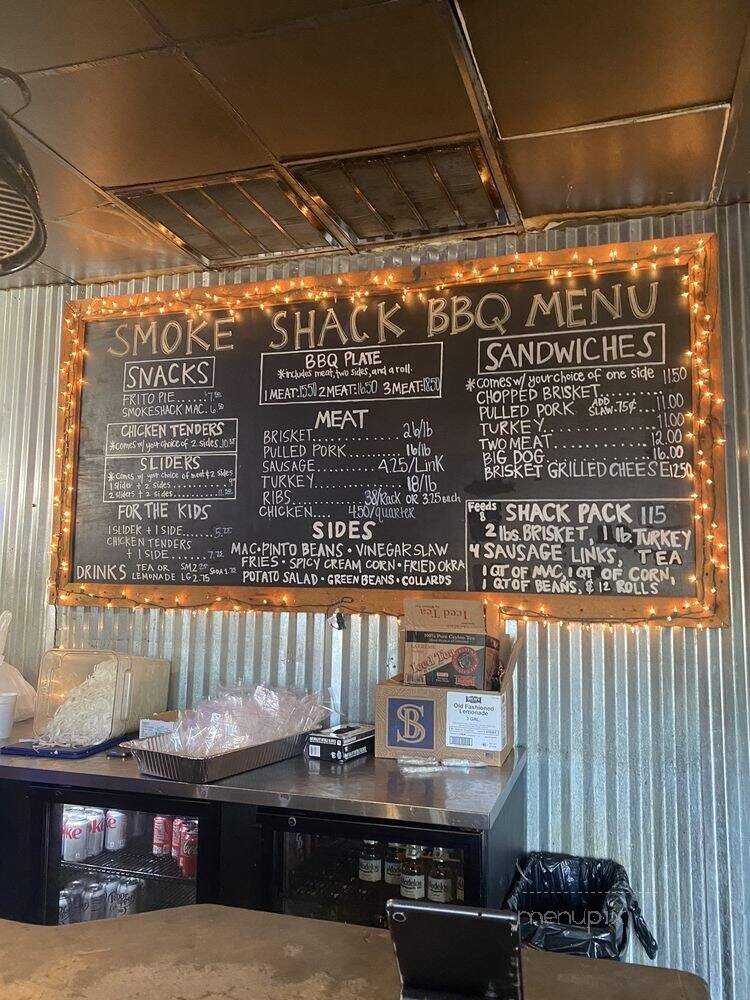 SMOKE SHACK BBQ MENU
SNACKS
FRITO PIE.......$7.50
SMOKESHACK MAC. 6.50
CHICKEN TENDERS
*comes w/ your choice of 2 sides. 10.50
SLIDERS
*Comes w/ your choice of meat & 2 sides
1 slider + 2 sides
2 sliders + 2 sides
FOR THE KIDS
1 SLIDER + 1 SIDE
CHICKEN TENDERS
+ 1 SIDE
DRINKS TEA OR LEMONADE SM 2.25 LG 2.75 SODA 1.75
BBQ PLATE
*includes meat, two sides, and a roll.
1 MEAT: 15.50 2 MEAT: 16.50 3 MEAT: 18.50
MEAT
BRISKET 26/lb
PULLED PORK 16/lb
SAUSAGE 4.25/Link
TURKEY 18/lb
RIBS 38/Rack OR 3.25 each
CHICKEN 4.50/quarter
SIDES
MAC • PINTO BEANS • VINEGAR SLAW
FRIES • SPICY CREAM CORN • FRIED OKRA
POTATO SALAD • GREEN BEANS • COLLARDS
SANDWICHES
*comes w/ your choice of one side
CHOPPED BRISKET 11.50
PULLED PORK ADD SLAW .75¢ 11.00
TURKEY 11.00
TWO MEAT 12.00
BIG DOG 16.00
BRISKET GRILLED CHEESE 12.50
Feeds 8 SHACK PACK 115
2 lbs. BRISKET, 1 lb. TURKEY
4 SAUSAGE LINKS, TEA
1 QT OF MAC, 1 QT OF CORN,
1 QT OF BEANS, & 12 ROLLS
Iced Tea
100% Pure Ceylon Tea
Iced Tea
SB
Old Fashioned
Lemonade
3 GAL
Coke
Modelo
menupix